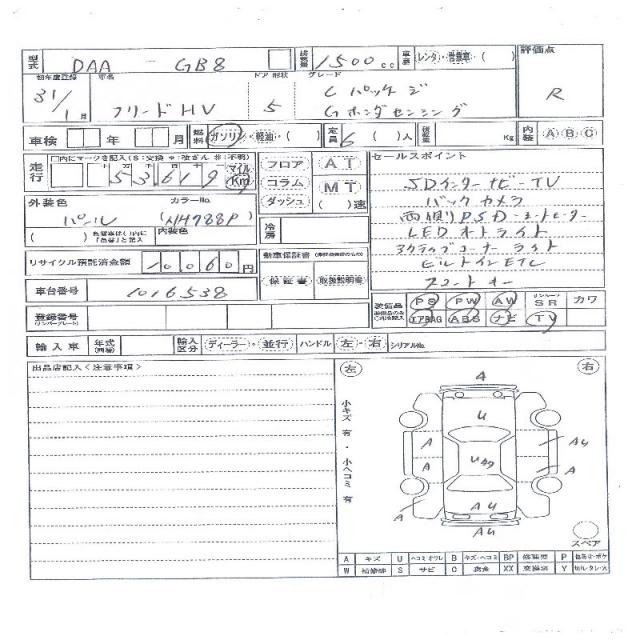 型式 DAA - GB8 排気量 1500cc 車歴 レンタ・営業車・( ) 評価点
初年度登録 車名 ドア 形状 グレード
31/1月 フリードHV 5 Cパッケージ R
Gホンダセンシング
車検 年 月 燃料 ガソリン・軽油・( ) 定員 6 ( )人 積載量 Kg 内装 A B C
走行 □内にマークを記入($:交換 *:改ざん #:不明) フロア AT セールスポイント
十万 万 千 百 十 マイル
53619 Km コラム MT SDインターナビ-TV
ダッシュ ( )速 バックカメラ
外装色 カラーNo. 両側PSD-シートヒーター
パール (NH788P) 冷房 LEDオートライト
( ) 内装色 アクティブコーナーライト
リサイクル預託済金額 10060円 新車保証書 ビルトインETC
車台番号 1016538 保証書 取扱説明書 スマートキー
登録番号 (ナンバープレート) 装備品 PS PW AW サンルーフ SR カワ
エアBAG ABS ナビ TV
輸入車 年式 輸入区分 ディーラー・並行 ハンドル 左・右 シリアルNo.
出品店記入<注意事項> 左 右
小キズ有・小ヘコミ有
4
U
A A4
U
A A
A A4
A4
スペア
A キズ U ヘコミ B キズ・ヘコミ BP P
W 補修跡 S サビ C 腐食 XX 交換済 Y